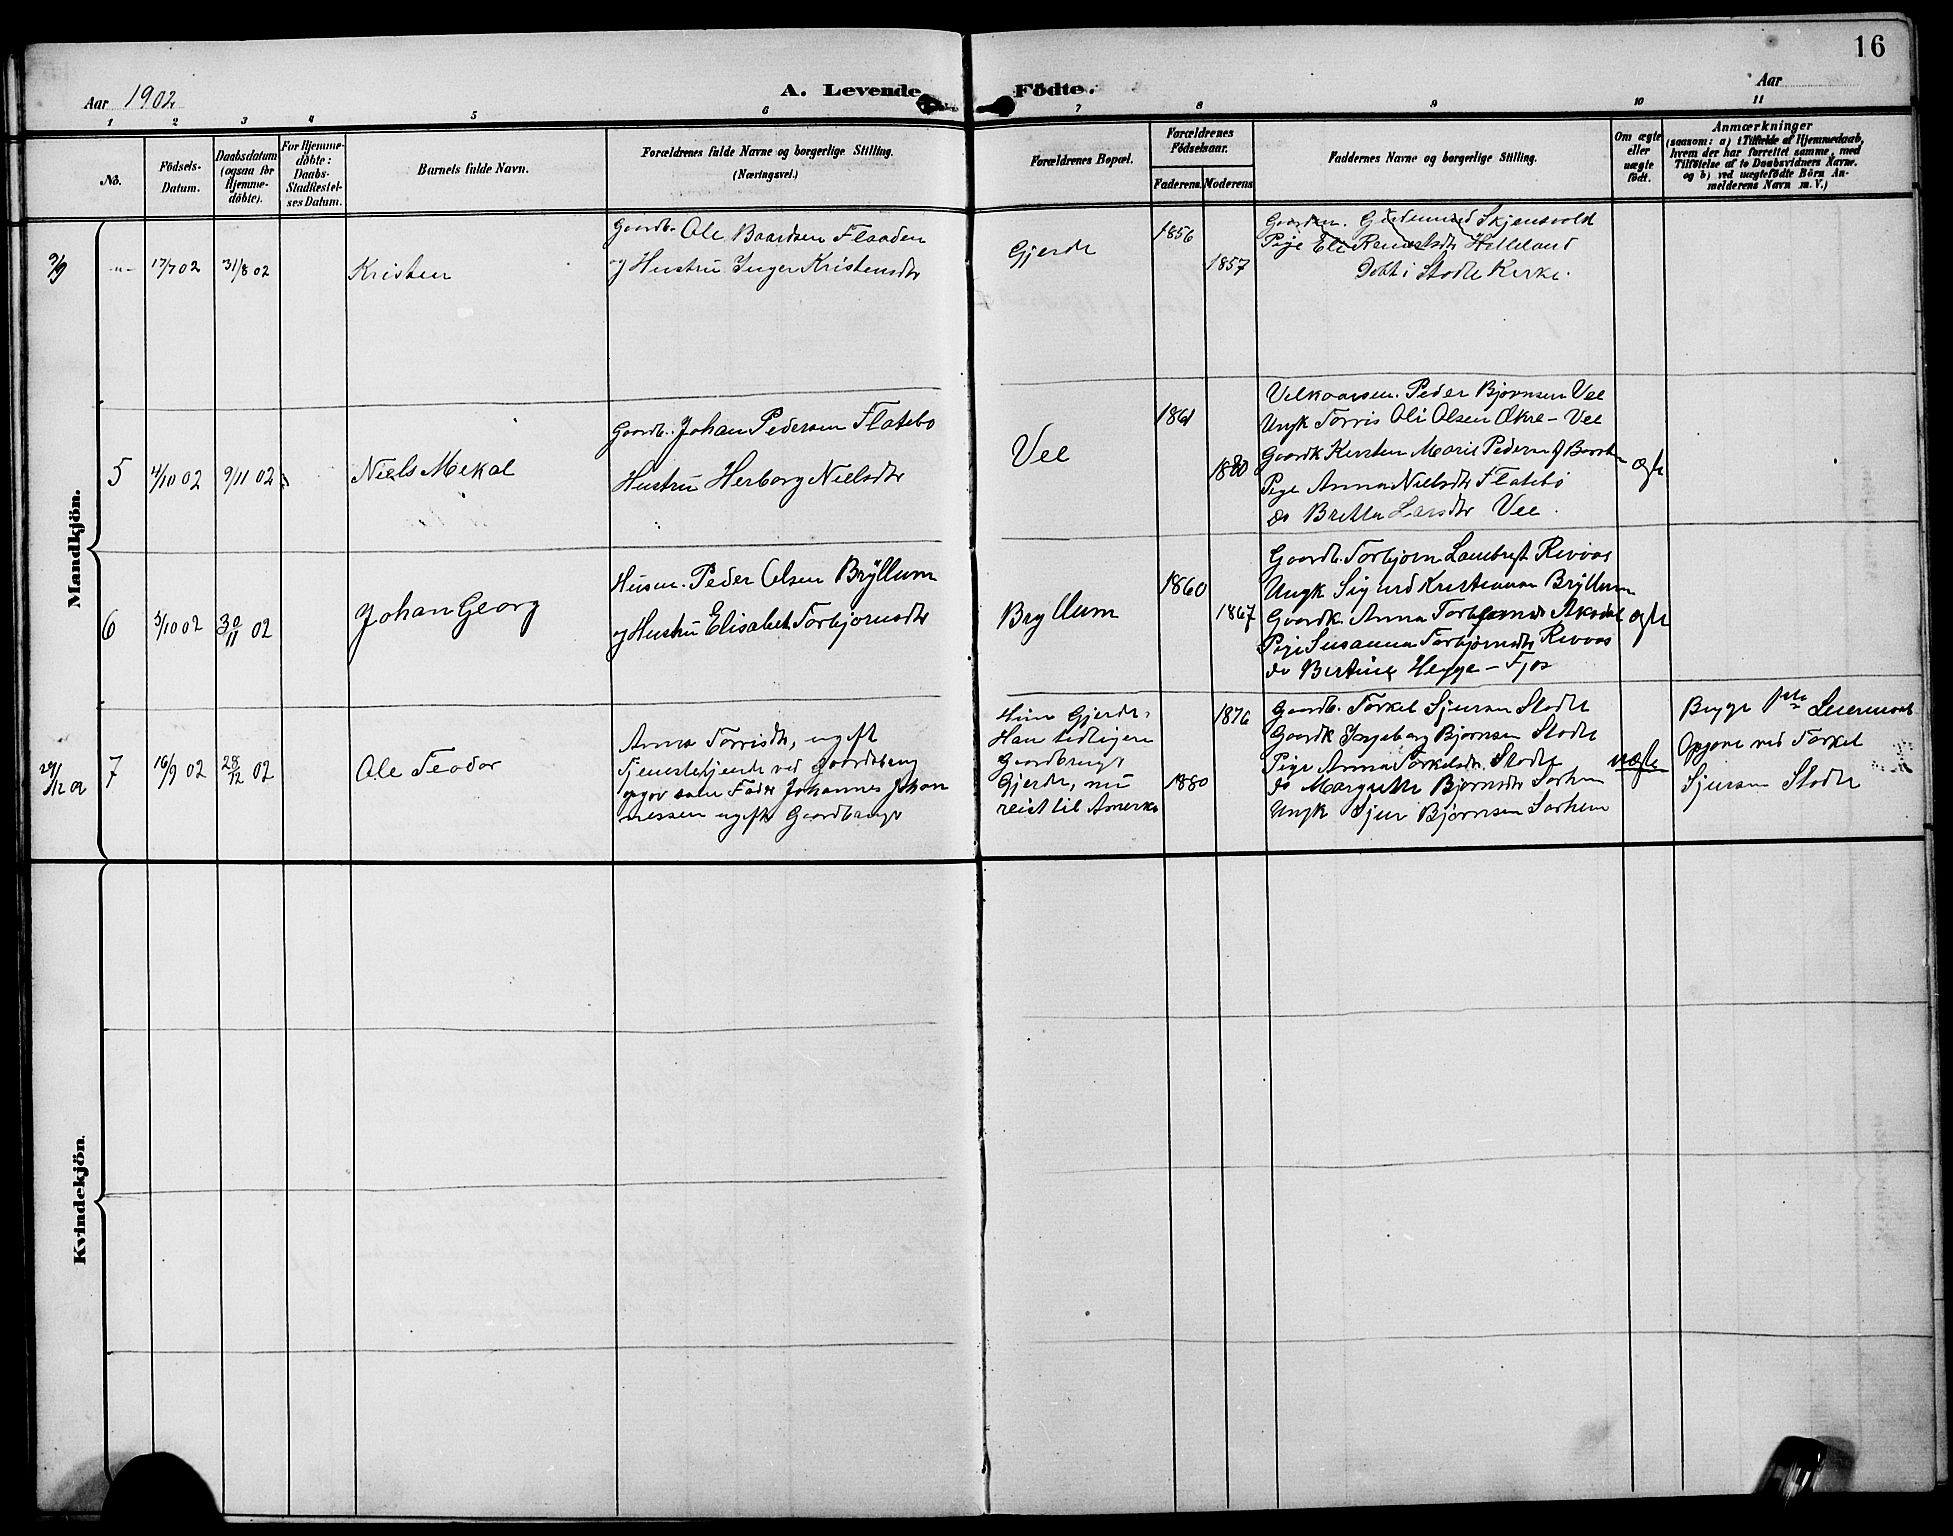 16
Aar 1902
A. Levende Födte.
Aar
1 2 3 4 5 6 7 8 9 10 11
No.
Födsels-Datum.
Daabsdatum (ogsaa for Hjemme-döbte).
For Hjemme-döbte: Daabs-Stadfæstel-ses Datum.
Barnets fulde Navn.
Forældrenes fulde Navne og borgerlige Stilling.
(Næringsvei.)
Forældrenes Bopæl.
Forældrenes Födselsaar.
Faderens. Moderens
Faddernes Navne og borgerlige Stilling.
Om ægte eller uægte födt.
Anmærkninger
(saasom: a) i Tilfælde af Hjemmedaab, hvem der har forrettet samme, med Tilföielse af to Daabsvidners Navne. og b) ved uægtefödte Börn An-melderens Navn m. V.)
Mandkjön.
9/9 -"- 17/7 02 31/8 02
Kristen
Gaardb. Ole Baardsen Flaaden
og Hustru Inger Kristensdtr
Gjerde
1856
1857
Skjensvold
Pige Eli Helleland
Döbt i Stodle Kirke.
5 4/10 02 9/11 02
Niels Mekal
Gaardb. Johan Pedersen Flatebo
Hustru Herborg Nielsdtr
Vee
1861
1880
Peder Bjørnsen Vee
Ungk Torris Oli Olsen Økre - Vee
Gaardk Kirsten Marie
Pige Anna Nielsdtr Flatebo
do Britha Larsdtr Vee.
ægte
6 3/10 02 30/11 02
Johan Georg
Husm. Peder Olsen Brÿllum
og Hustru Elisabet Torbjørnsdtr
Bryllum
1860
1867
Gaardb. Torbjørn Revaas
Ungk Sigurd Kristiansen Brÿllum
Gaardk. Anna Aksdal
Pige Susanna Torbjørnsdtr Revaas
do Bertine Hegge - Fjos
ægte
29/12 02 7 16/9 02 28/12 02
Ole Teodor
Anna Torrisdtr, ugift
Tjenestetjente ved Gaardsbrug
opgav som Fader Johannes Johan
nessen ugift Gaardbruger
Hun Gjerde,
Han tidligere
Gaardbruger
Gjerde, nu
reist til Amerika
1876
1880
Gaardb. Torkel Sjursen Stodle
Gaardk Ingeborg Bjørnsen Stodle
Pige Anna Torkelsdtr. Stodle
do Margrethe Bjørnsdtr Sørheim
Ungk Sjur Bjørnsen Sørheim
uægte
Begge 1ste Leiermaal
Opgave ved Torkel
Sjursen Stodle
Kvindekjön.